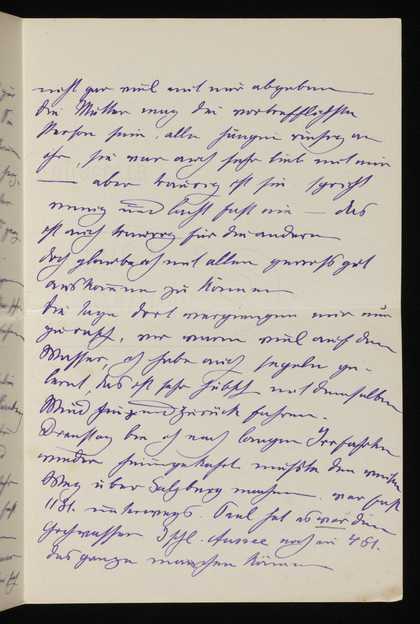 nicht gar viel mit mir abgeben
die Mutter mag die vortrefflichste
Person sein, alle hängen riesig an
ihr, sie war auch sehr lieb mit mir
— aber traurig ist sie spricht
wenig und lacht fast nie — das
ist auch traurig für die andern
doch glaube ich mit allen gewiss gut
auskommen zu können
die Tage dort vergingen mir nur
zu rasch, wir waren viel auf dem
Wasser, ich habe auch segeln ge-
lernt, das ist sehr hübsch mit demselben
Wind hin und zurück fahren.
Dienstag bin ich nach langen Irrfahrten
wieder heimgekehrt musste den weiten
Weg über Salzburg machen. war fast
11 St. unterwegs. Paul hat es vor dem
Hochwasser Aussee noch in 4 St.
das ganze machen können